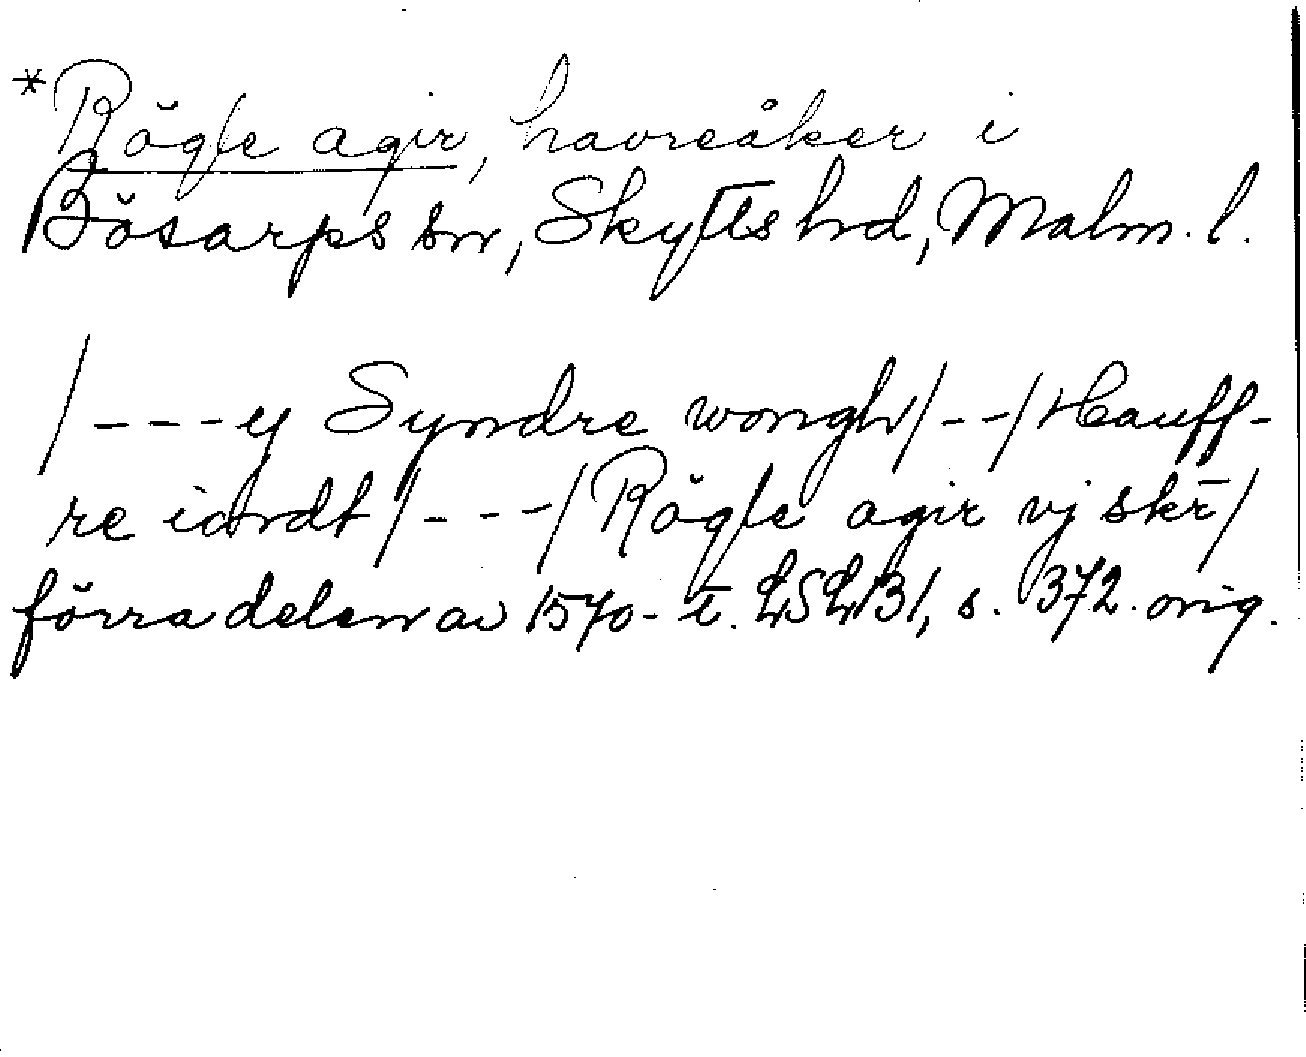 *Rögle agir, havreåker i
Bösarps sn, Skytts hd, Malm. l.
/---y Syndre wongh/--/Hauff-
re iordt/---/Rögle agir vj skr̄/
förra delen av 1570-t. LSLB1, s. 372. orig.